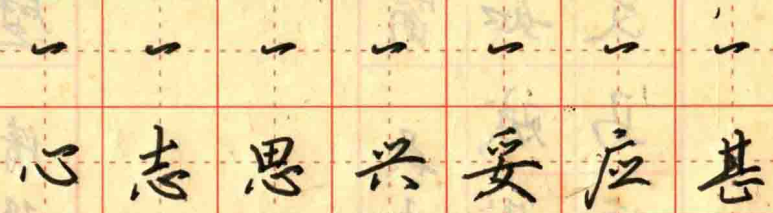 心志思兴妥应甚